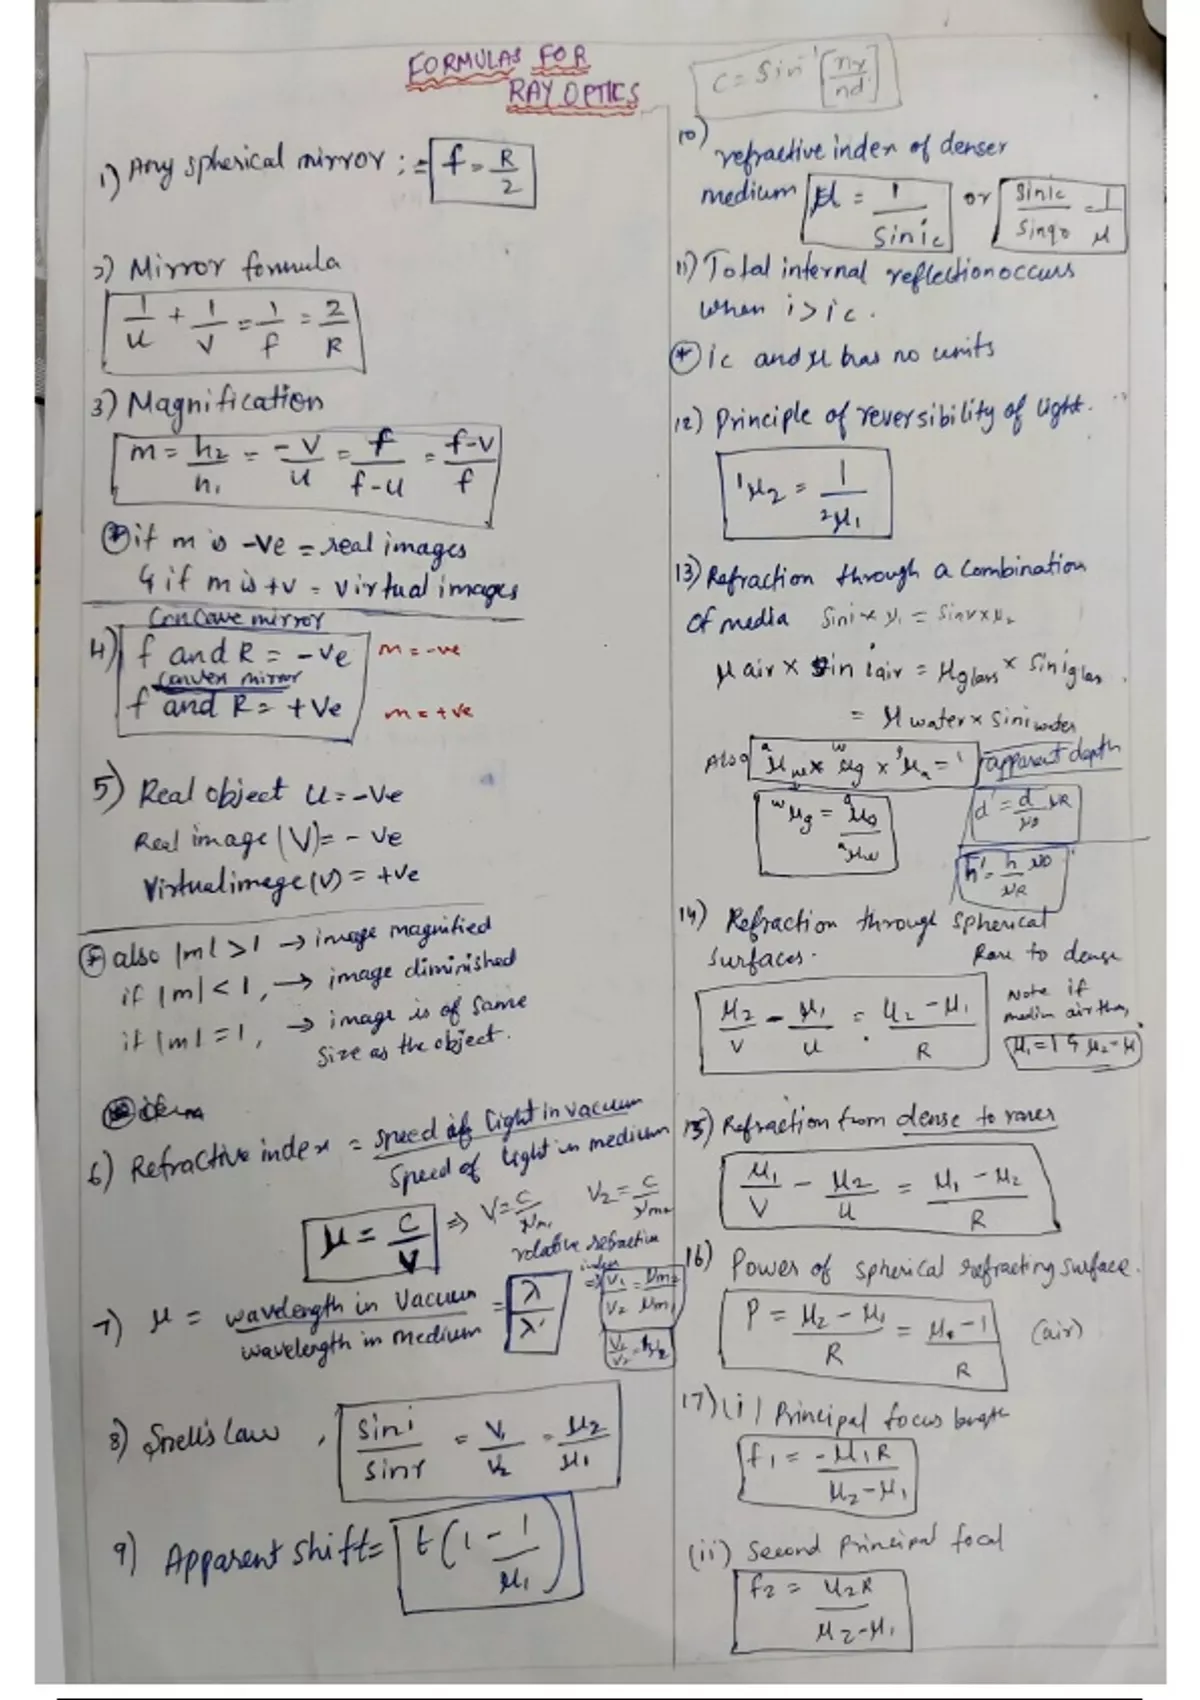 FORMULAS FOR
RAY OPTICS
1) Any spherical mirror :- f = R/2
2) Mirror formula
1/u + 1/v = 1/f = 2/R
3) Magnification
m = h2/h1 = -v/u = f/f-u = f-v/f
* if m is -ve = real images
& if m is +v = virtual images
Concave mirror
4) f and R = -ve m = -ve
Convex mirror
f and R = +ve m = +ve
5) Real object u = -ve
Real image (V) = -ve
Virtual image (v) = +ve
* also |m| > 1 → image magnified
if |m| < 1, → image diminished
if |m| = 1, → image is of same
size as the object.
6) Refractive index = speed of light in vacuum / speed of light in medium
μ = c/v ⇒ V1 = c/μm1 V2 = c/μm2
relative refractive
index
⇒ V1/V2 = μm2/μm1
7) μ = wavelength in vacuum / wavelength in medium = λ/λ'
8) Snell's law, sin i/sin r = V1/V2 = μ2/μ1
9) Apparent shift = t(1 - 1/μ1)
C = Sin⁻¹[nr/nd]
10) refractive index of denser
medium μ = 1/Sin ic or Sin ic/Sin 90 = 1/μ
11) Total internal reflection occurs
when i > ic.
* ic and μ has no units
12) Principle of reversibility of light.
¹μ2 = 1/²μ1
13) Refraction through a combination
of media Sin i × μ1 = Sin r × μ2
μ air × sin i air = μ glass × sin i glass
= μ water × sin i water
Also ᵃμw × ʷμg × ᵍμa = 1 apparent depth
ʷμg = ᵃμg/ᵃμw d' = d/μo μR
h' = h/μR μo
14) Refraction through spherical
surfaces. Rare to dense
μ2/v - μ1/u = μ2 - μ1/R
Note if
medium air then,
μ1 = 1 & μ2 = μ
15) Refraction from dense to rarer
μ1/v - μ2/u = μ1 - μ2/R
16) Power of spherical refracting surface.
P = μ2 - μ1/R = μ2 - 1/R (air)
17) (i) Principal focus length
f1 = -μ1R/μ2-μ1
(ii) Second principal focal
f2 = μ2R/μ2-μ1